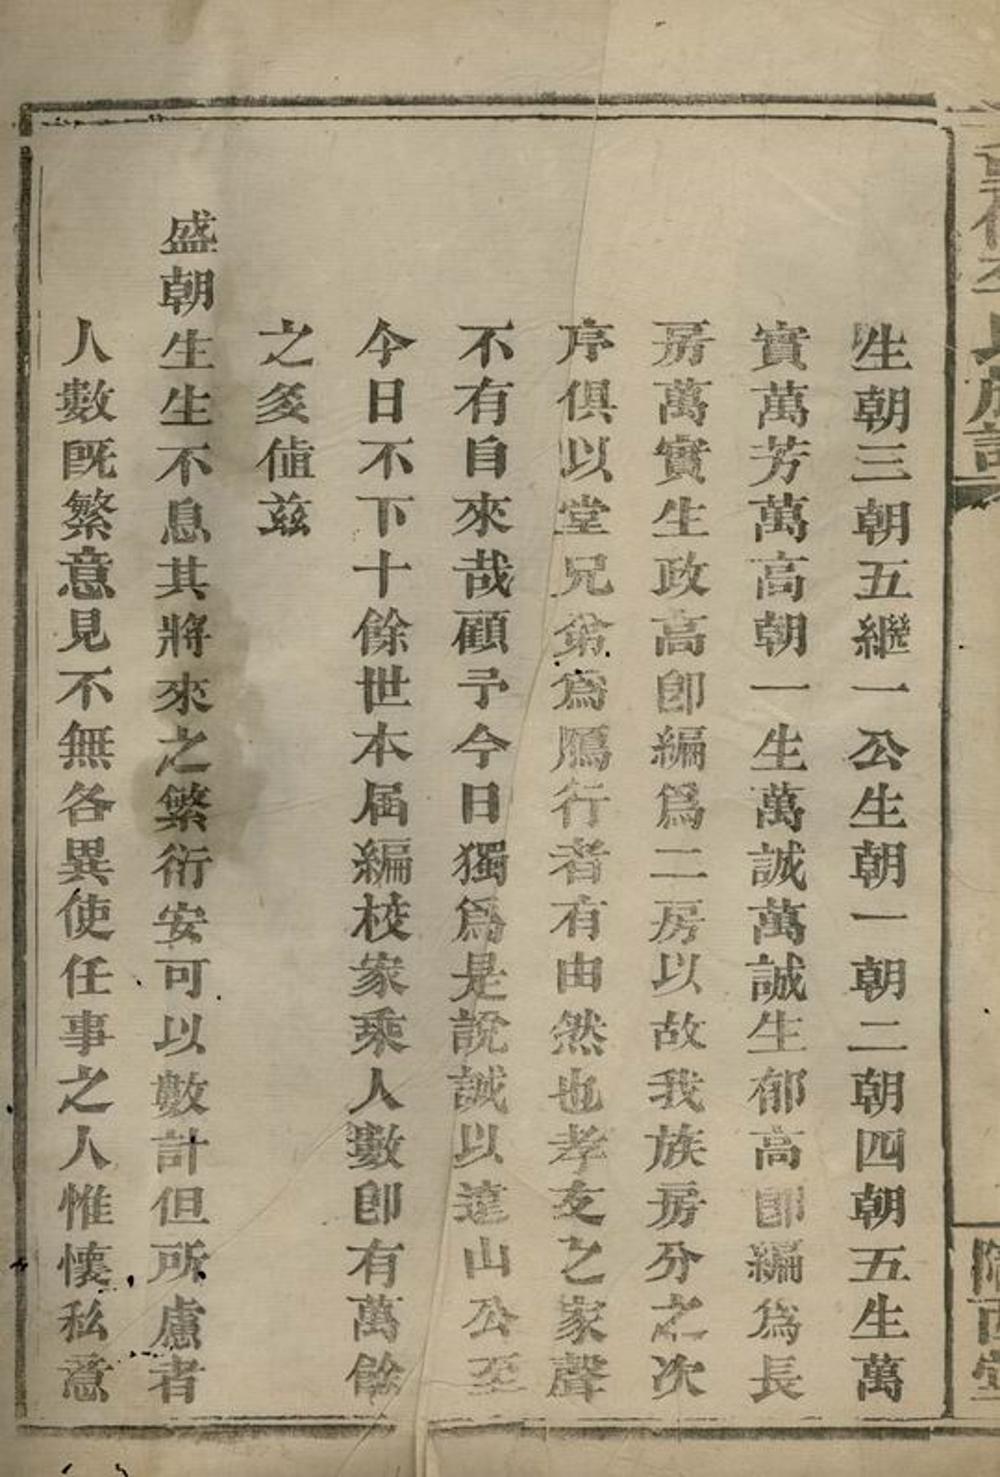 氏族譜
隴西堂
生朝三朝五繼一公生朝一朝二朝四朝五生萬
實萬芳萬高朝一生萬誠萬誠生郁高卽編爲長
房萬實生政高卽編爲二房以故我族房分之次
序俱以堂兄弟爲鴈行者有由然也孝友之家聲
不有自來哉顧予今日獨爲是說誠以達山公至
今日不下十餘世本屆編校家乘人數卽有萬餘
之多值茲
盛朝生生不息其將來之繁衍安可以數計但所慮者
人數旣繁意見不無各異使任事之人惟懷私意